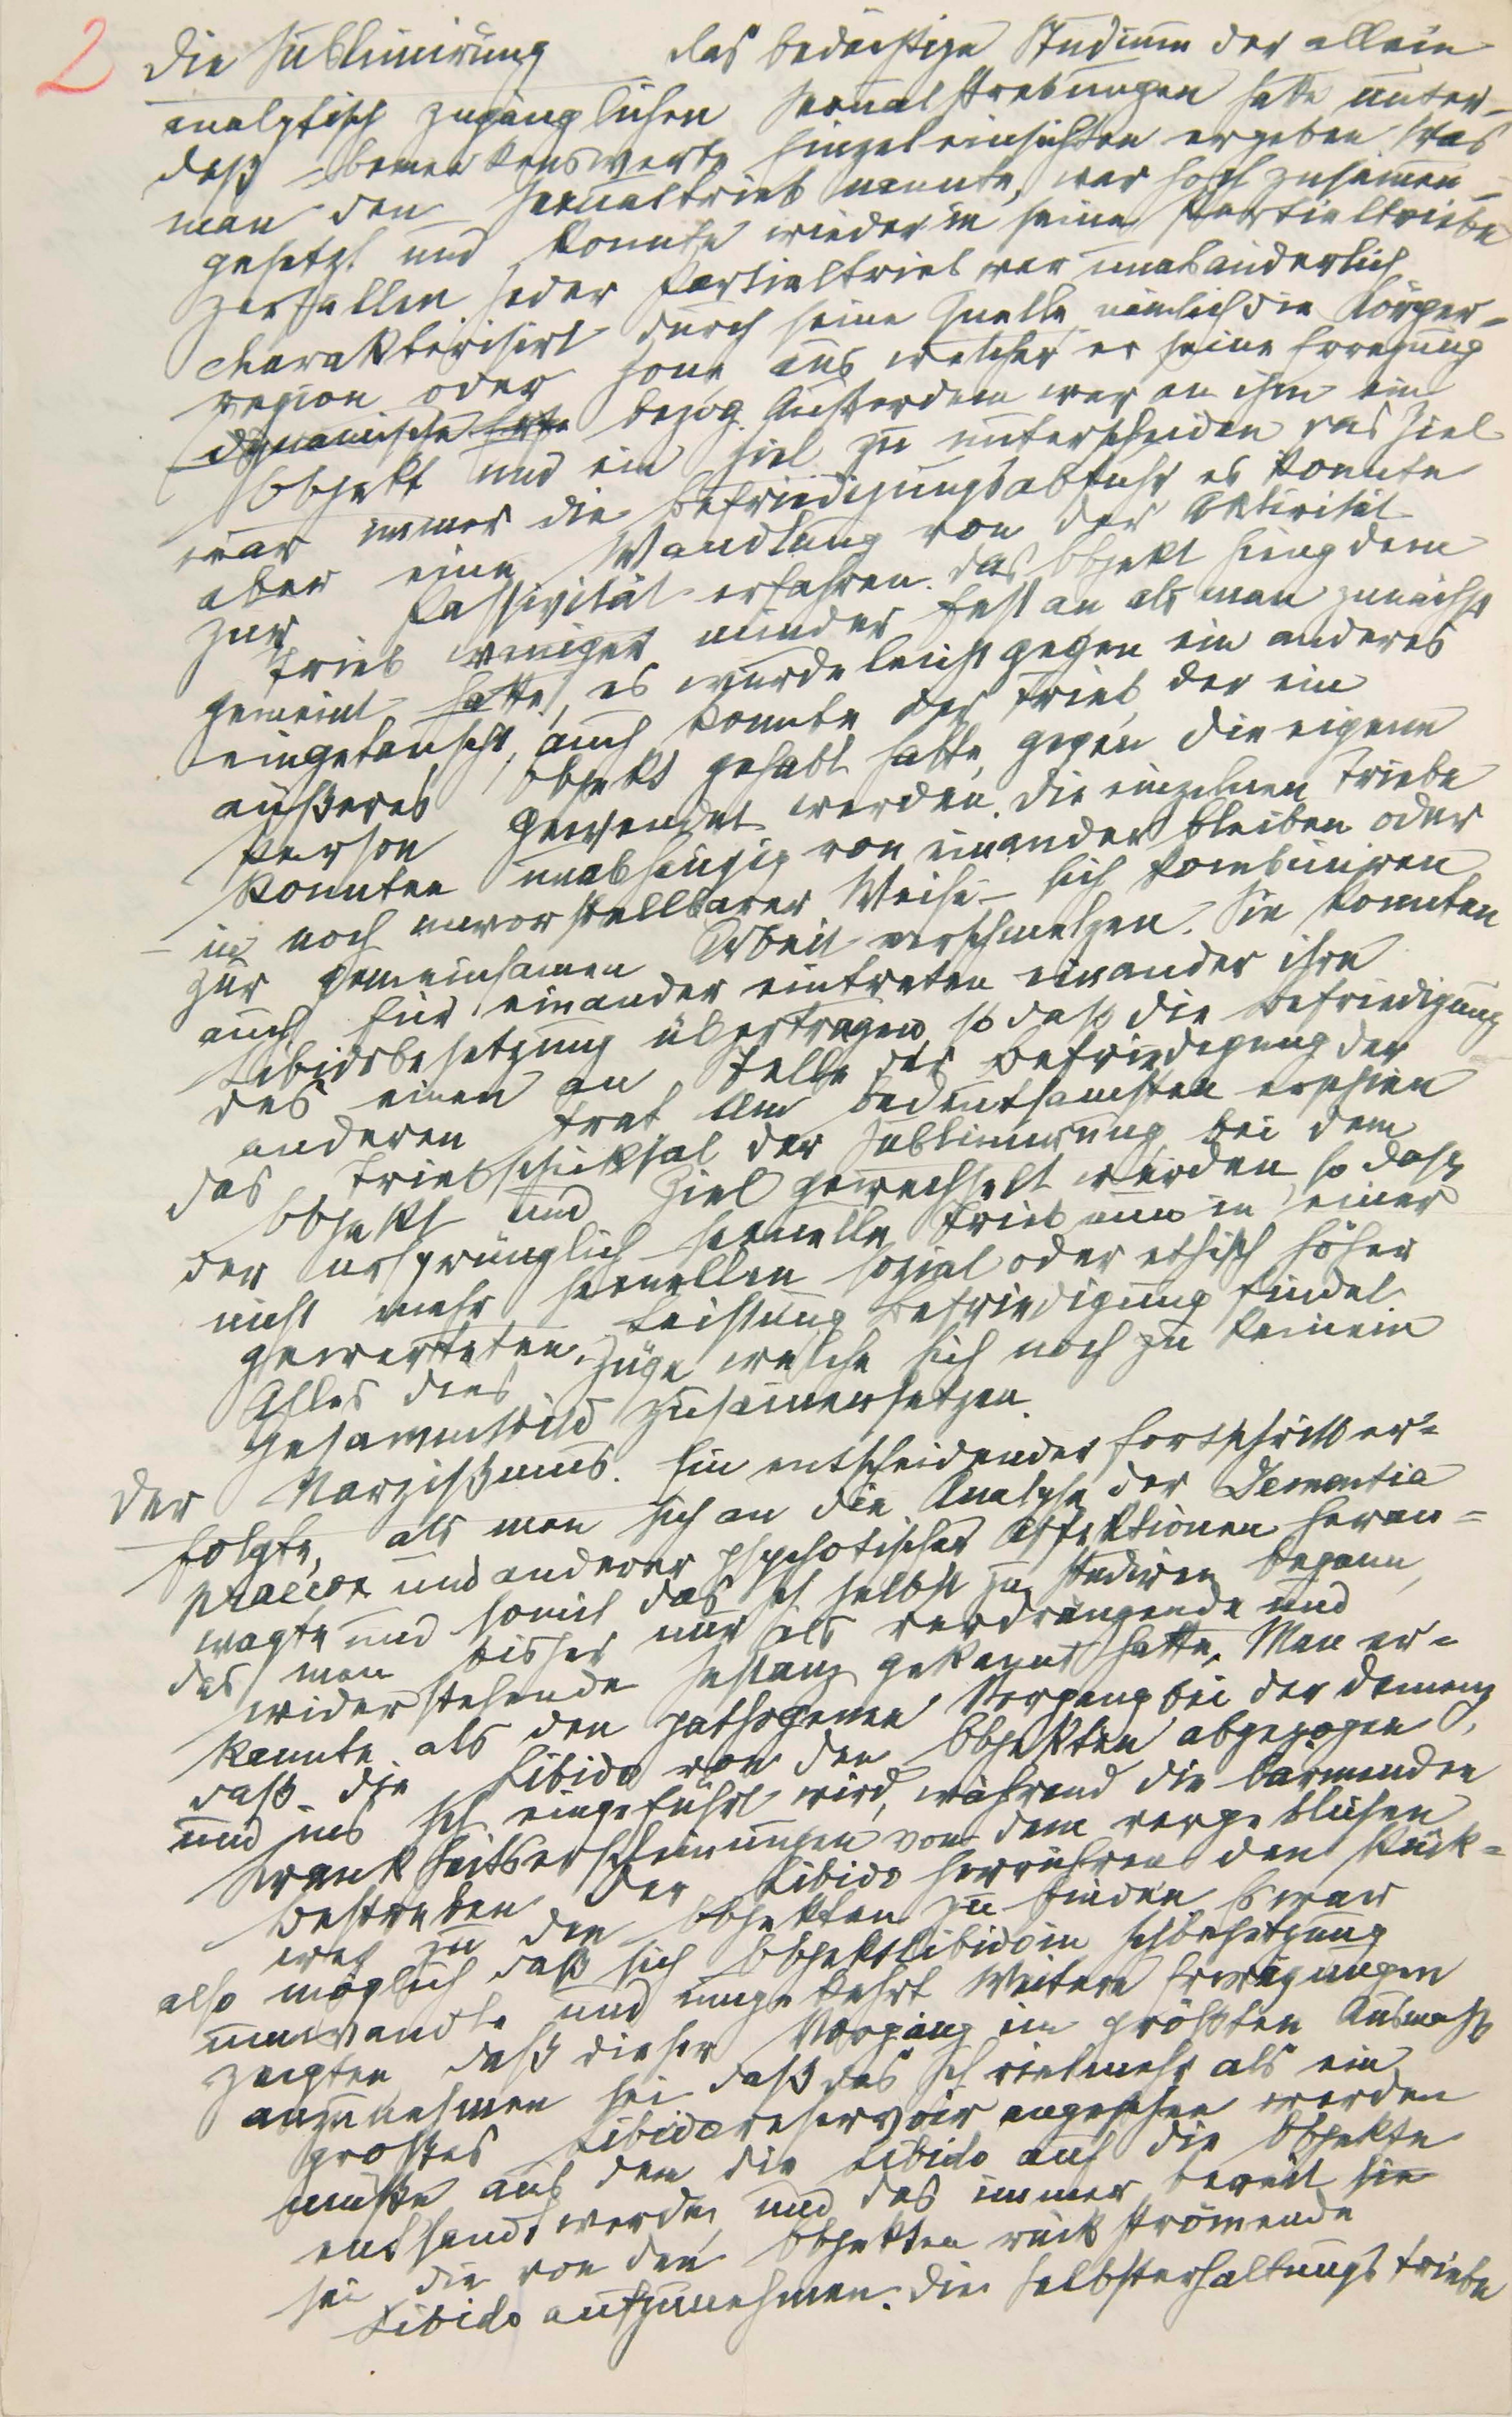 2
Die Sublimirung Das bedächtige Studium der allein
analytisch zugänglichen Sexualstrebungen hatte unter-
deß bemerkenswerte Einzeleinsichten ergeben. Was
man den Sexualtrieb nannte, war hoch zusammen-
gesetzt und konnte wieder in seine Partialtriebe
zerfallen. Jeder Partialtrieb war unabänderlich
charakterisirt durch seine Quelle, nämlich die Körper-
region oder Zone, aus welcher er seine Erregung
dynamische bezog. Außerdem war an ihm ein
Objekt und ein Ziel zu unterscheiden. Das Ziel
war immer die Befriedigungsabfuhr, es konnte
aber eine Wandlung von der Aktivität
zur Passivität erfahren. Das Objekt hieng dem
Trieb weniger minder fest an als man zunächst
gemeint hatte, es wurde leicht gegen ein anderes
eingetauscht, auch konnte der Trieb, der ein
äußeres Objekt gehabt hatte, gegen die eigene
Person gewendet werden. Die einzelnen Triebe
konnten unabhängig von einander bleiben oder
– in noch unvorstellbarer Weise – sich kombiniren
zur gemeinsamen Arbeit verschmelzen. Sie konnten
auch für einander eintreten, einander ihre
Libidobesetzung übertragen, so daß die Befriedigung
des einen an Stelle der Befriedigung der
anderen trat. Am bedeutsamsten erschien
das Triebschicksal der Sublimirung, bei dem
Objekt und Ziel gewechselt werden, so daß
der ursprünglich sexuelle Trieb nun in einer
nicht mehr sexuellen, sozial oder ethisch höher
gewerteten Leistung Befriedigung findet.
Alles dies Züge, welche sich noch zu keinem
Gesammtbild zusammensetzen.
Der Narzißmus. Ein entscheidender Fortschritt er-
folgte, als man sich an die Analyse der Dementia
praecox und anderer psychotischer Affektionen heran-
wagte und somit das Ich selbst zu studiren begann,
das man bisher nur als verdrängende und
widerstehende Instanz gekannt hatte. Man er-
kannte als den pathogenen Vorgang bei der Demenz,
daß die Libido von den Objekten abgezogen
und ins Ich eingeführt wird, während die lärmenden
Krankheitserscheinungen von dem vergeblichen
Bestreben der Libido herrühren, den Rück-
weg zu den Objekten zu finden. Es war
also möglich, daß sich Objektlibido in Ichbesetzung
umwandle und umgekehrt. Weitere Erwägungen
zeigten, daß dieser Vorgang im größten Ausmaß
anzunehmen sei, daß das Ich vielmehr als ein
großes Libidoreservoir angesehen werden
müßte, aus dem die Libido auf die Objekte
entsandt werde, und das immer bereit sie
sei, die von den Objekten rückströmende
Libido aufzunehmen. Die Selbsterhaltungstriebe